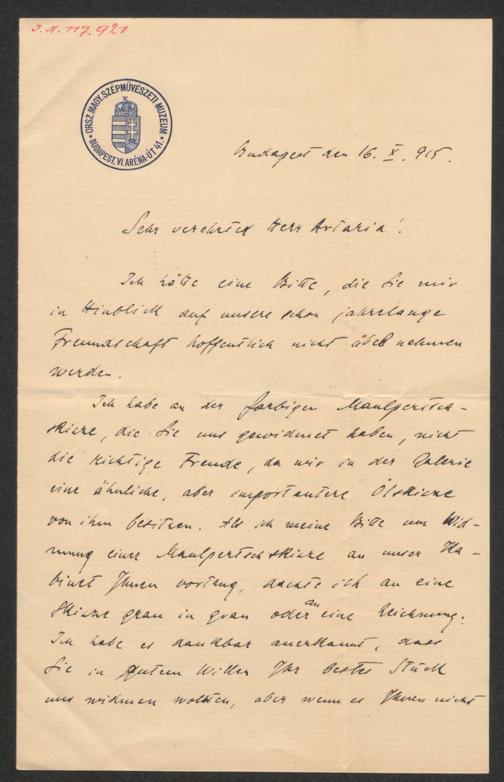 I.N. 117.921
ORSZ. MAGY. SZÉPMŰVÉSZETI MUZEUM
BUDAPEST, VI. ARÉNA-ÚT 41.
Budapest den 16. X. 915.
Sehr verehrter Herr Artaria!
Ich hätte eine Bitte, die Sie mir
in Hinblick auf unsere schon jahrelange
Freundschaft hoffentlich nicht übel nehmen
werden.
Ich habe an der farbigen Maulpertsch-
skizze, die Sie uns gewidmet haben, nicht
die richtige Freude, da wir in der Galerie
eine ähnliche, aber importantere Ölskizze
von ihm besitzen. Als ich meine Bitte um Wid-
mung einer Maulpertschskizze an unser Ka-
binet Ihnen vortrug, dachte ich an eine
Skizze grau in grau oder an eine Zeichnung.
Ich habe es dankbar anerkannt, dass
Sie in gutem Willen Ihr bestes Stück
uns widmen wollten, aber wenn es Ihnen nicht